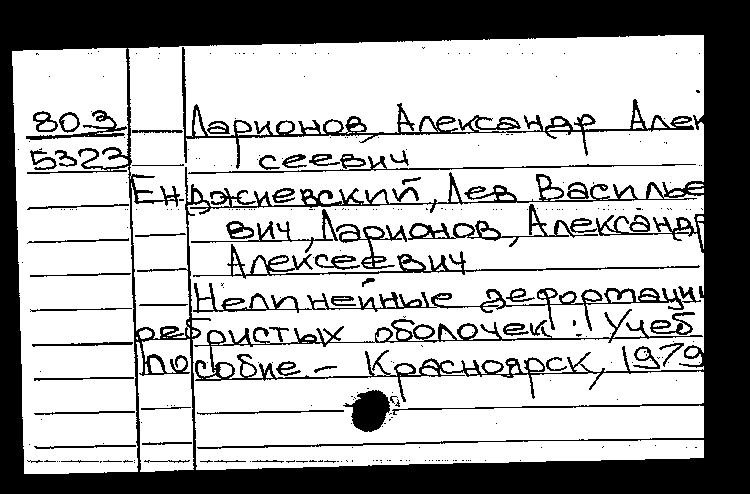 80-3 Ларионов, Александр Алек
5323 сеевич
Енджиевский, Лев Василье
вич, Ларионов, Александр
Алексеевич
Нелинейные деформации
ребристых оболочек : Учеб
пособие. – Красноярск, 1979